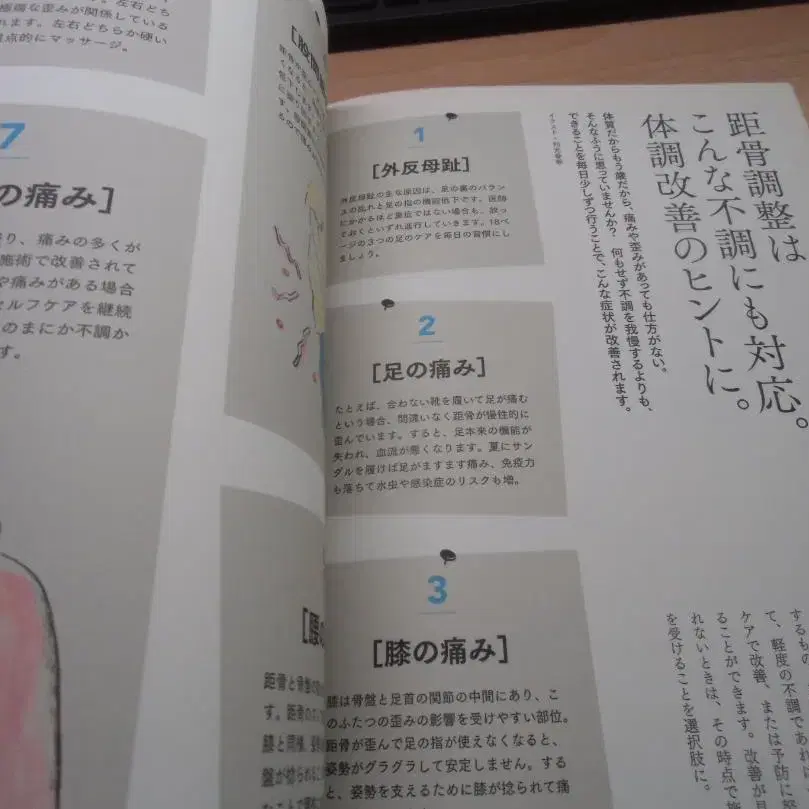 距骨調整は
こんな不調にも対応。
体調改善のヒントに。
体質だからもう歳だから、痛みや歪みがあっても仕方がない。
そんなふうに思っていませんか? 何もせず不調を我慢するよりも、
できることを毎日少しずつ行うことで、こんな症状が改善されます。
1
[外反母趾]
外反母趾の主な原因は、足の裏のバラン
スの乱れと足の指の機能低下です。医師
にかかるほど重症ではない場合も、放っ
ておくといずれ進行していきます。18ペ
ージの3つの足のケアを毎日の習慣にし
ましょう。
2
[足の痛み]
たとえば、合わない靴を履いて足が痛む
という場合、間違いなく距骨が慢性的に
歪んでいます。すると、足本来の機能が
失われ、血流が悪くなります。夏にサン
ダルを履けば足がますます痛み、免疫力
も落ちて水虫や感染症のリスクも増。
3
[膝の痛み]
膝は骨盤と足首の関節の中間にあり、こ
のふたつの歪みの影響を受けやすい部位。
距骨が歪んで足の指が使えなくなると、
姿勢がグラグラして安定しません。する
と、姿勢を支えるために膝が捻られて痛
するもの
て、軽度の不調であれば
ケアで改善、または予防に
ることができます。改善が
れないときは、その時点で
を受けることを選択肢に。
左右どち
極端な歪みが関係している
れます。左右どちらか硬い
点的にマッサージ。
7
の痛み]
り、痛みの多くが
施術で改善されて
や痛みがある場合
セルフケアを継続
のまにか不調か
す。
[腰の
距骨と骨盤の
す。距骨の
膝と同様、
盤が捻られる